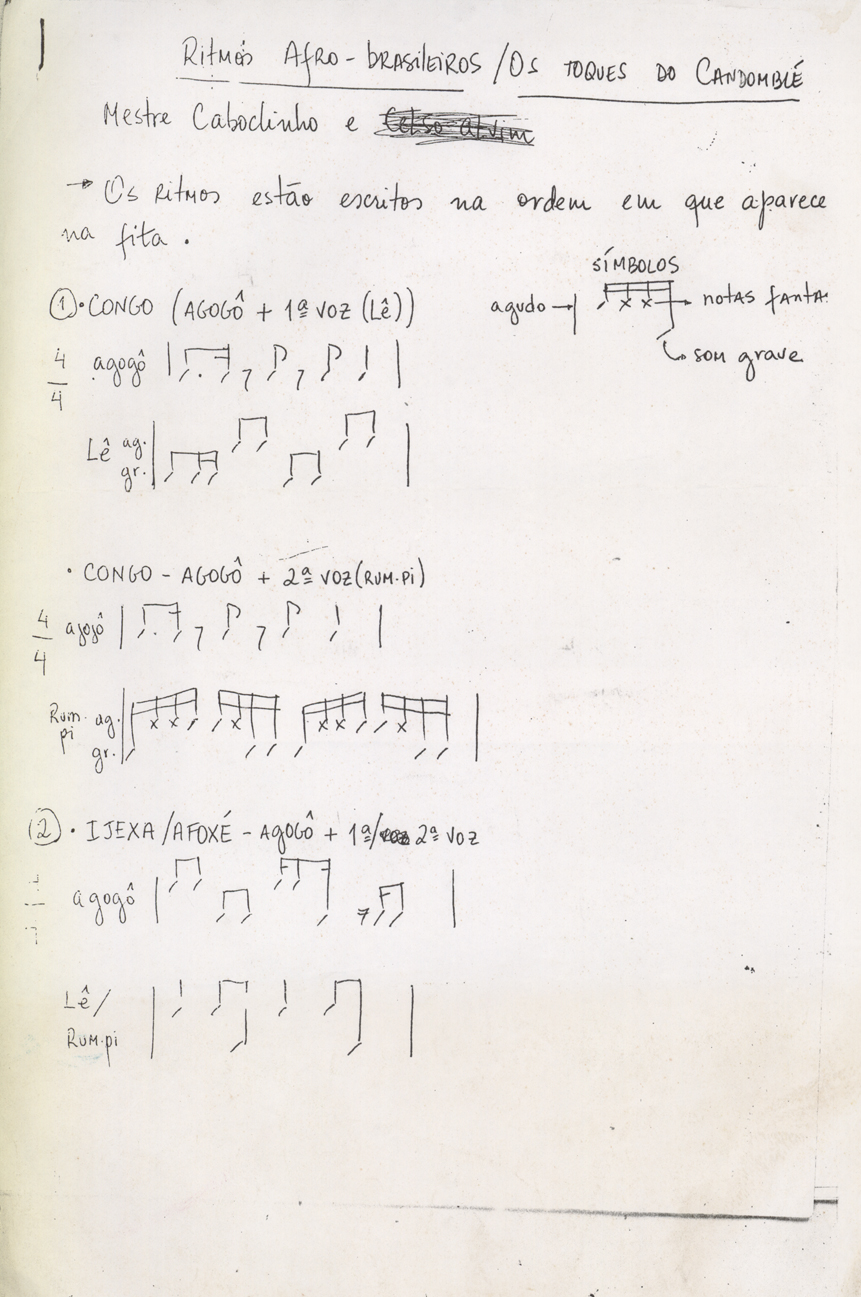 1
Ritmos Afro-brasileiros / Os toques do Candomblé
Mestre Caboclinho e Celso Alvim
→ Os ritmos estão escritos na ordem em que aparece
na fita.
SÍMBOLOS
agudo → notas fanta.
som grave
① • CONGO (AGOGÔ + 1ª VOZ (Lê))
4/4 agogô
Lê ag.
gr.
• CONGO - AGOGÔ + 2ª VOZ (RUM.Pi)
4/4 agogô
Rum. ag.
pi gr.
② • IJEXA/AFOXÉ - AGOGÔ + 1ª/ 2ª VOZ
agogô
Lê/
Rum.pi